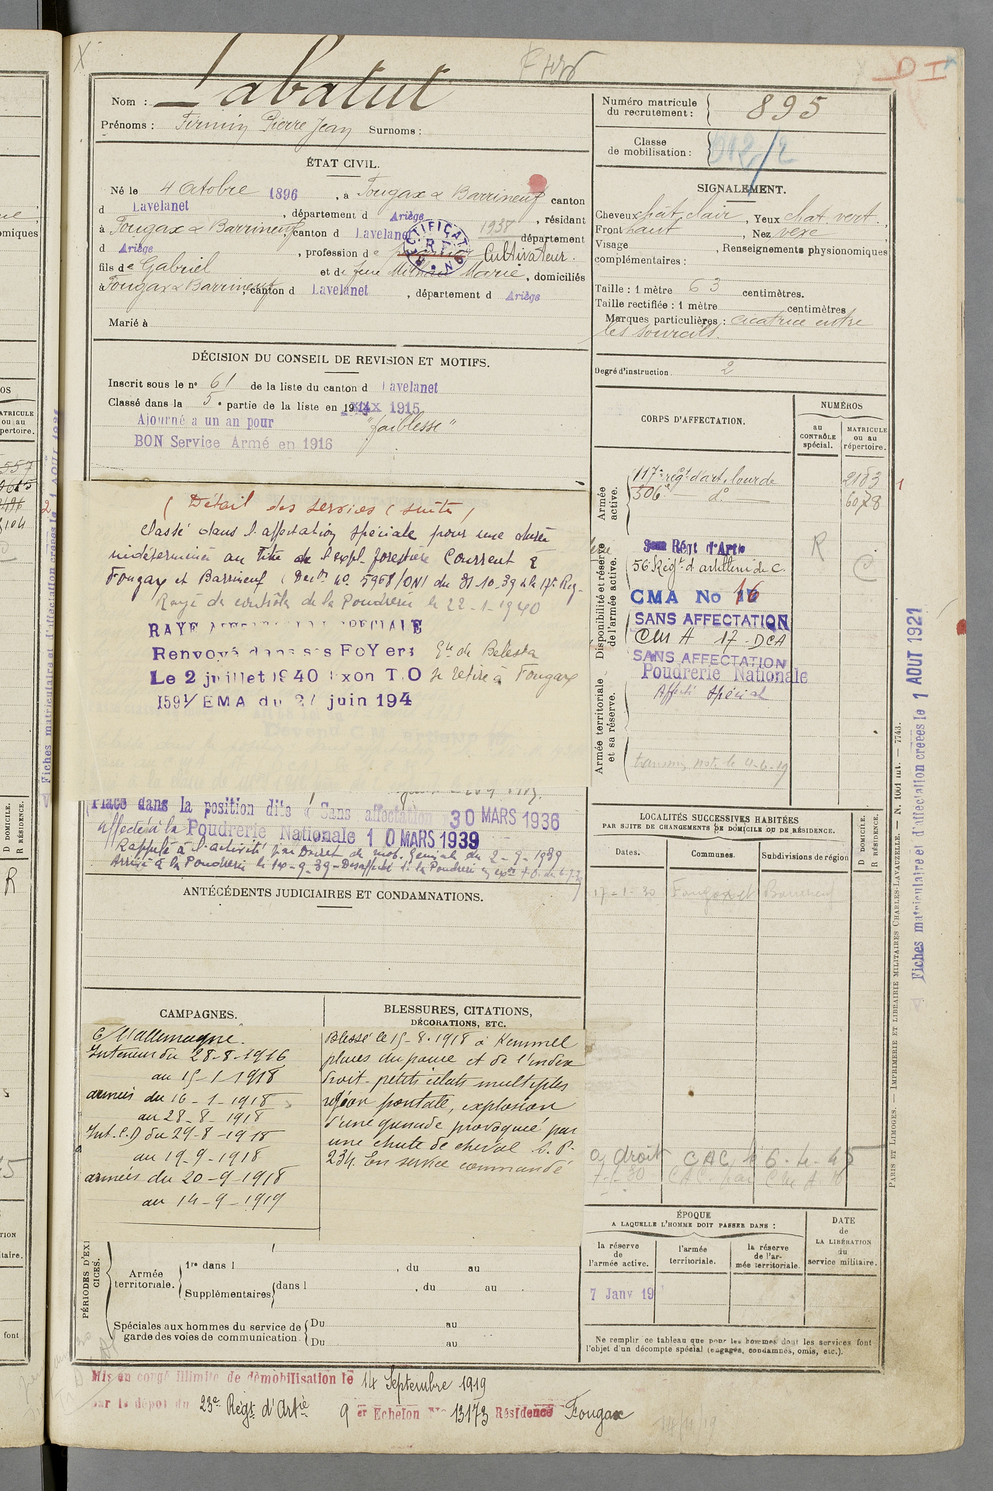 Nom : Labatut
Prénoms : Firmin Pierre Jean Surnoms :
ÉTAT CIVIL.
Né le 4 Octobre 1896, à Fougax & Barrineuf canton
d Lavelanet, département d Ariège, résidant
à Fougax & Barrineuf, canton d Lavelanet 1938 département
d Ariège, profession de Cultivateur.
fils de Gabriel et de Marie, domiciliés
à Fougax & Barrineuf, canton d Lavelanet, département d Ariège
Marié à
DÉCISION DU CONSEIL DE REVISION ET MOTIFS.
Inscrit sous le n° 61 de la liste du canton d Lavelanet
Classé dans la 5e partie de la liste en 1915
Ajourné a un an pour "faiblesse"
BON Service Armé en 1916
( Détail des services ( suite )
Classé dans l'affectation spéciale pour une durée
indéterminée au titre de l'expl. forestière Courrent à
Fougax et Barrineuf (
Rayé du contrôle de la Poudrerie le 22-1-1940
RAYE AFFECTATION SPECIALE
Renvoyé dans ses FoYers Gie de Belesta
Le 2 juillet 1940 Exon T.O se retire à Fougax
1591/EMA du 27 juin 194
Placé dans la position dite « Sans affectation 30 MARS 1936
affecté à la Poudrerie Nationale 10 MARS 1939
Rappelé à l'activité par Décret de mob. Générale du 2-9-1939
Arrivé à la Poudrerie le
ANTÉCÉDENTS JUDICIAIRES ET CONDAMNATIONS.
CAMPAGNES.
C/ l'allemagne.
Intérieur du 28-8-1916
au 15-1-1918
armées du 16-1-1918
au 28-8-1918
Int. C.D du 29-8-1918
au 19-9-1918
armées du 20-9-1918
au 14-9-1919
BLESSURES, CITATIONS,
DÉCORATIONS, ETC.
Blessé le 15-8-1918 à Kemmel
plaies du pouce et de l'index
droit-petits éclats multiples
région frontale, explosion
d'une grenade provoquée par
une chute de cheval S.P.
234. En service commandé
PÉRIODES D'EXERCICES.
Armée territoriale.
1re dans l , du au
Supplémentaires dans l , du au
Spéciales aux hommes du service de garde des voies de communication.
Du au
Du au
Mis en congé illimité de démobilisation le 14 Septembre 1919
par le dépôt du 23e Régt d'Artie 9 er Echelon No 13173 Résidence Fougax
Numéro matricule
du recrutement : 895
Classe
de mobilisation :
SIGNALEMENT.
Cheveux chât. clair, Yeux chat. vert.
Front haut, Nez vexe
Visage , Renseignements physionomiques
complémentaires :
Taille : 1 mètre 63 centimètres.
Taille rectifiée : 1 mètre centimètres
Marques particulières : cicatrice entre
les sourcils.
Degré d'instruction 2
CORPS D'AFFECTATION.
NUMÉROS
au
CONTRÔLE
spécial.
MATRICULE
ou au
répertoire.
Armée
active.
117e régt d'art. lourde 2183
306e do 6078
Disponibilité et réserve
de l'armée active.
Régt d'Artie
56 Régt d'artillerie de C.
R
CMA No 16
SANS AFFECTATION
CM A 17-DCA
SANS AFFECTATION
Poudrerie Nationale
Affecté Spécial
Armée territoriale
et sa réserve.
LOCALITÉS SUCCESSIVES HABITÉES
PAR SUITE DE CHANGEMENTS DE DOMICILE OU DE RÉSIDENCE.
Dates.
Communes.
Subdivisions de région
D DOMICILE.
R RÉSIDENCE.
17-1-30 Fougax et Barrineuf
a droit CAC, le 6-4-45
ÉPOQUE
A LAQUELLE L'HOMME DOIT PASSER DANS :
la réserve
de
l'armée active.
l'armée
territoriale.
la réserve
de l'ar-
mée territoriale.
DATE
de
LA LIBÉRATION
du
service militaire.
7 Janv 19
Ne remplir ce tableau que pour les hommes dont les services font
l'objet d'un décompte spécial (engagés, condamnés, omis, etc.).
PARIS ET LIMOGES. — IMPRIMERIE ET LIBRAIRIE MILITAIRES CHARLES-LAVAUZELLE. — N. 1001 int. — 7743.
Fiches matriculaire et d'affectation créées le 1 AOUT 1921